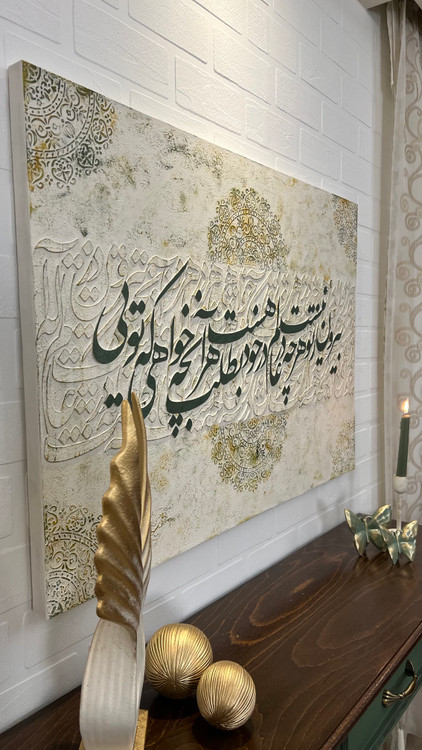 بیرون ز تو نیست هر چه در عالم هست در خود بطلب هر آنچه خواهی که تویی